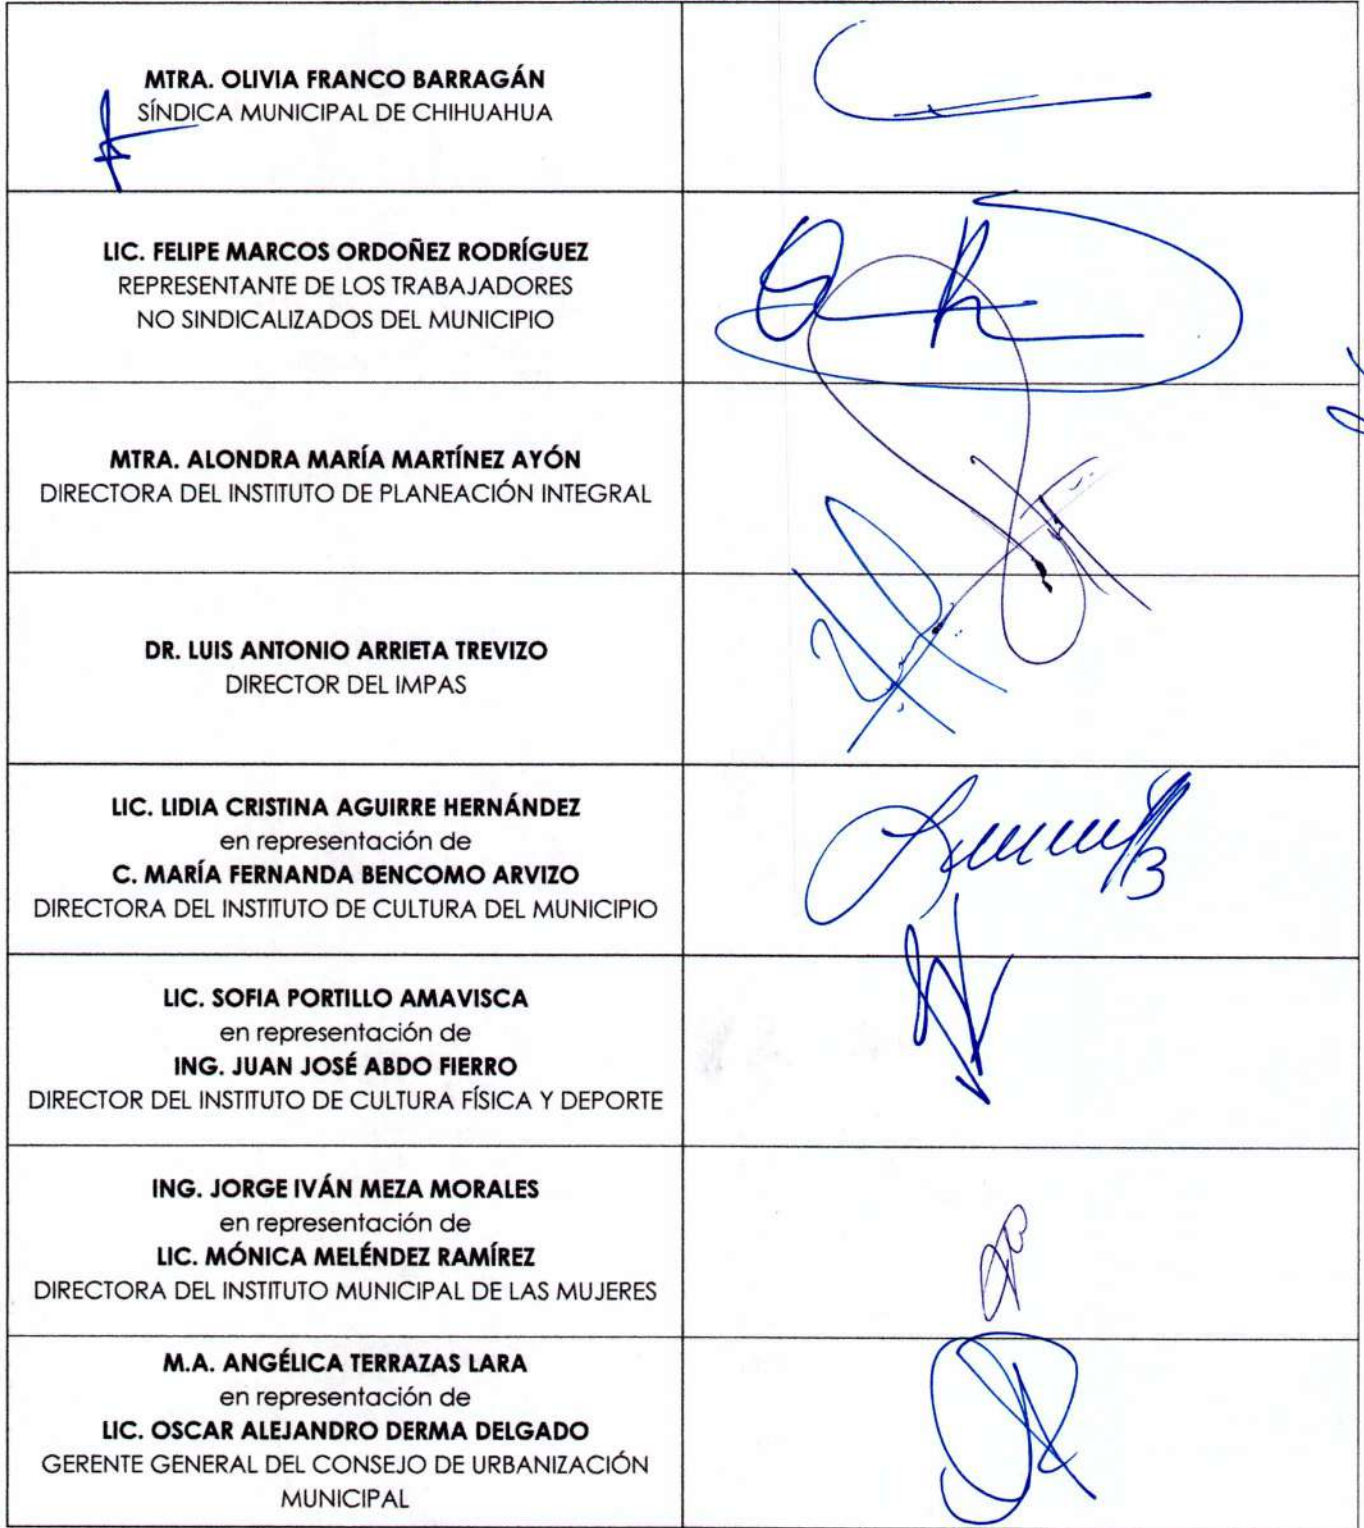 MTRA. OLIVIA FRANCO BARRAGÁN
SÍNDICA MUNICIPAL DE CHIHUAHUA
LIC. FELIPE MARCOS ORDOÑEZ RODRÍGUEZ
REPRESENTANTE DE LOS TRABAJADORES
NO SINDICALIZADOS DEL MUNICIPIO
MTRA. ALONDRA MARÍA MARTÍNEZ AYÓN
DIRECTORA DEL INSTITUTO DE PLANEACIÓN INTEGRAL
DR. LUIS ANTONIO ARRIETA TREVIZO
DIRECTOR DEL IMPAS
LIC. LIDIA CRISTINA AGUIRRE HERNÁNDEZ
en representación de
C. MARÍA FERNANDA BENCOMO ARVIZO
DIRECTORA DEL INSTITUTO DE CULTURA DEL MUNICIPIO
LIC. SOFIA PORTILLO AMAVISCA
en representación de
ING. JUAN JOSÉ ABDO FIERRO
DIRECTOR DEL INSTITUTO DE CULTURA FÍSICA Y DEPORTE
ING. JORGE IVÁN MEZA MORALES
en representación de
LIC. MÓNICA MELÉNDEZ RAMÍREZ
DIRECTORA DEL INSTITUTO MUNICIPAL DE LAS MUJERES
M.A. ANGÉLICA TERRAZAS LARA
en representación de
LIC. OSCAR ALEJANDRO DERMA DELGADO
GERENTE GENERAL DEL CONSEJO DE URBANIZACIÓN
MUNICIPAL